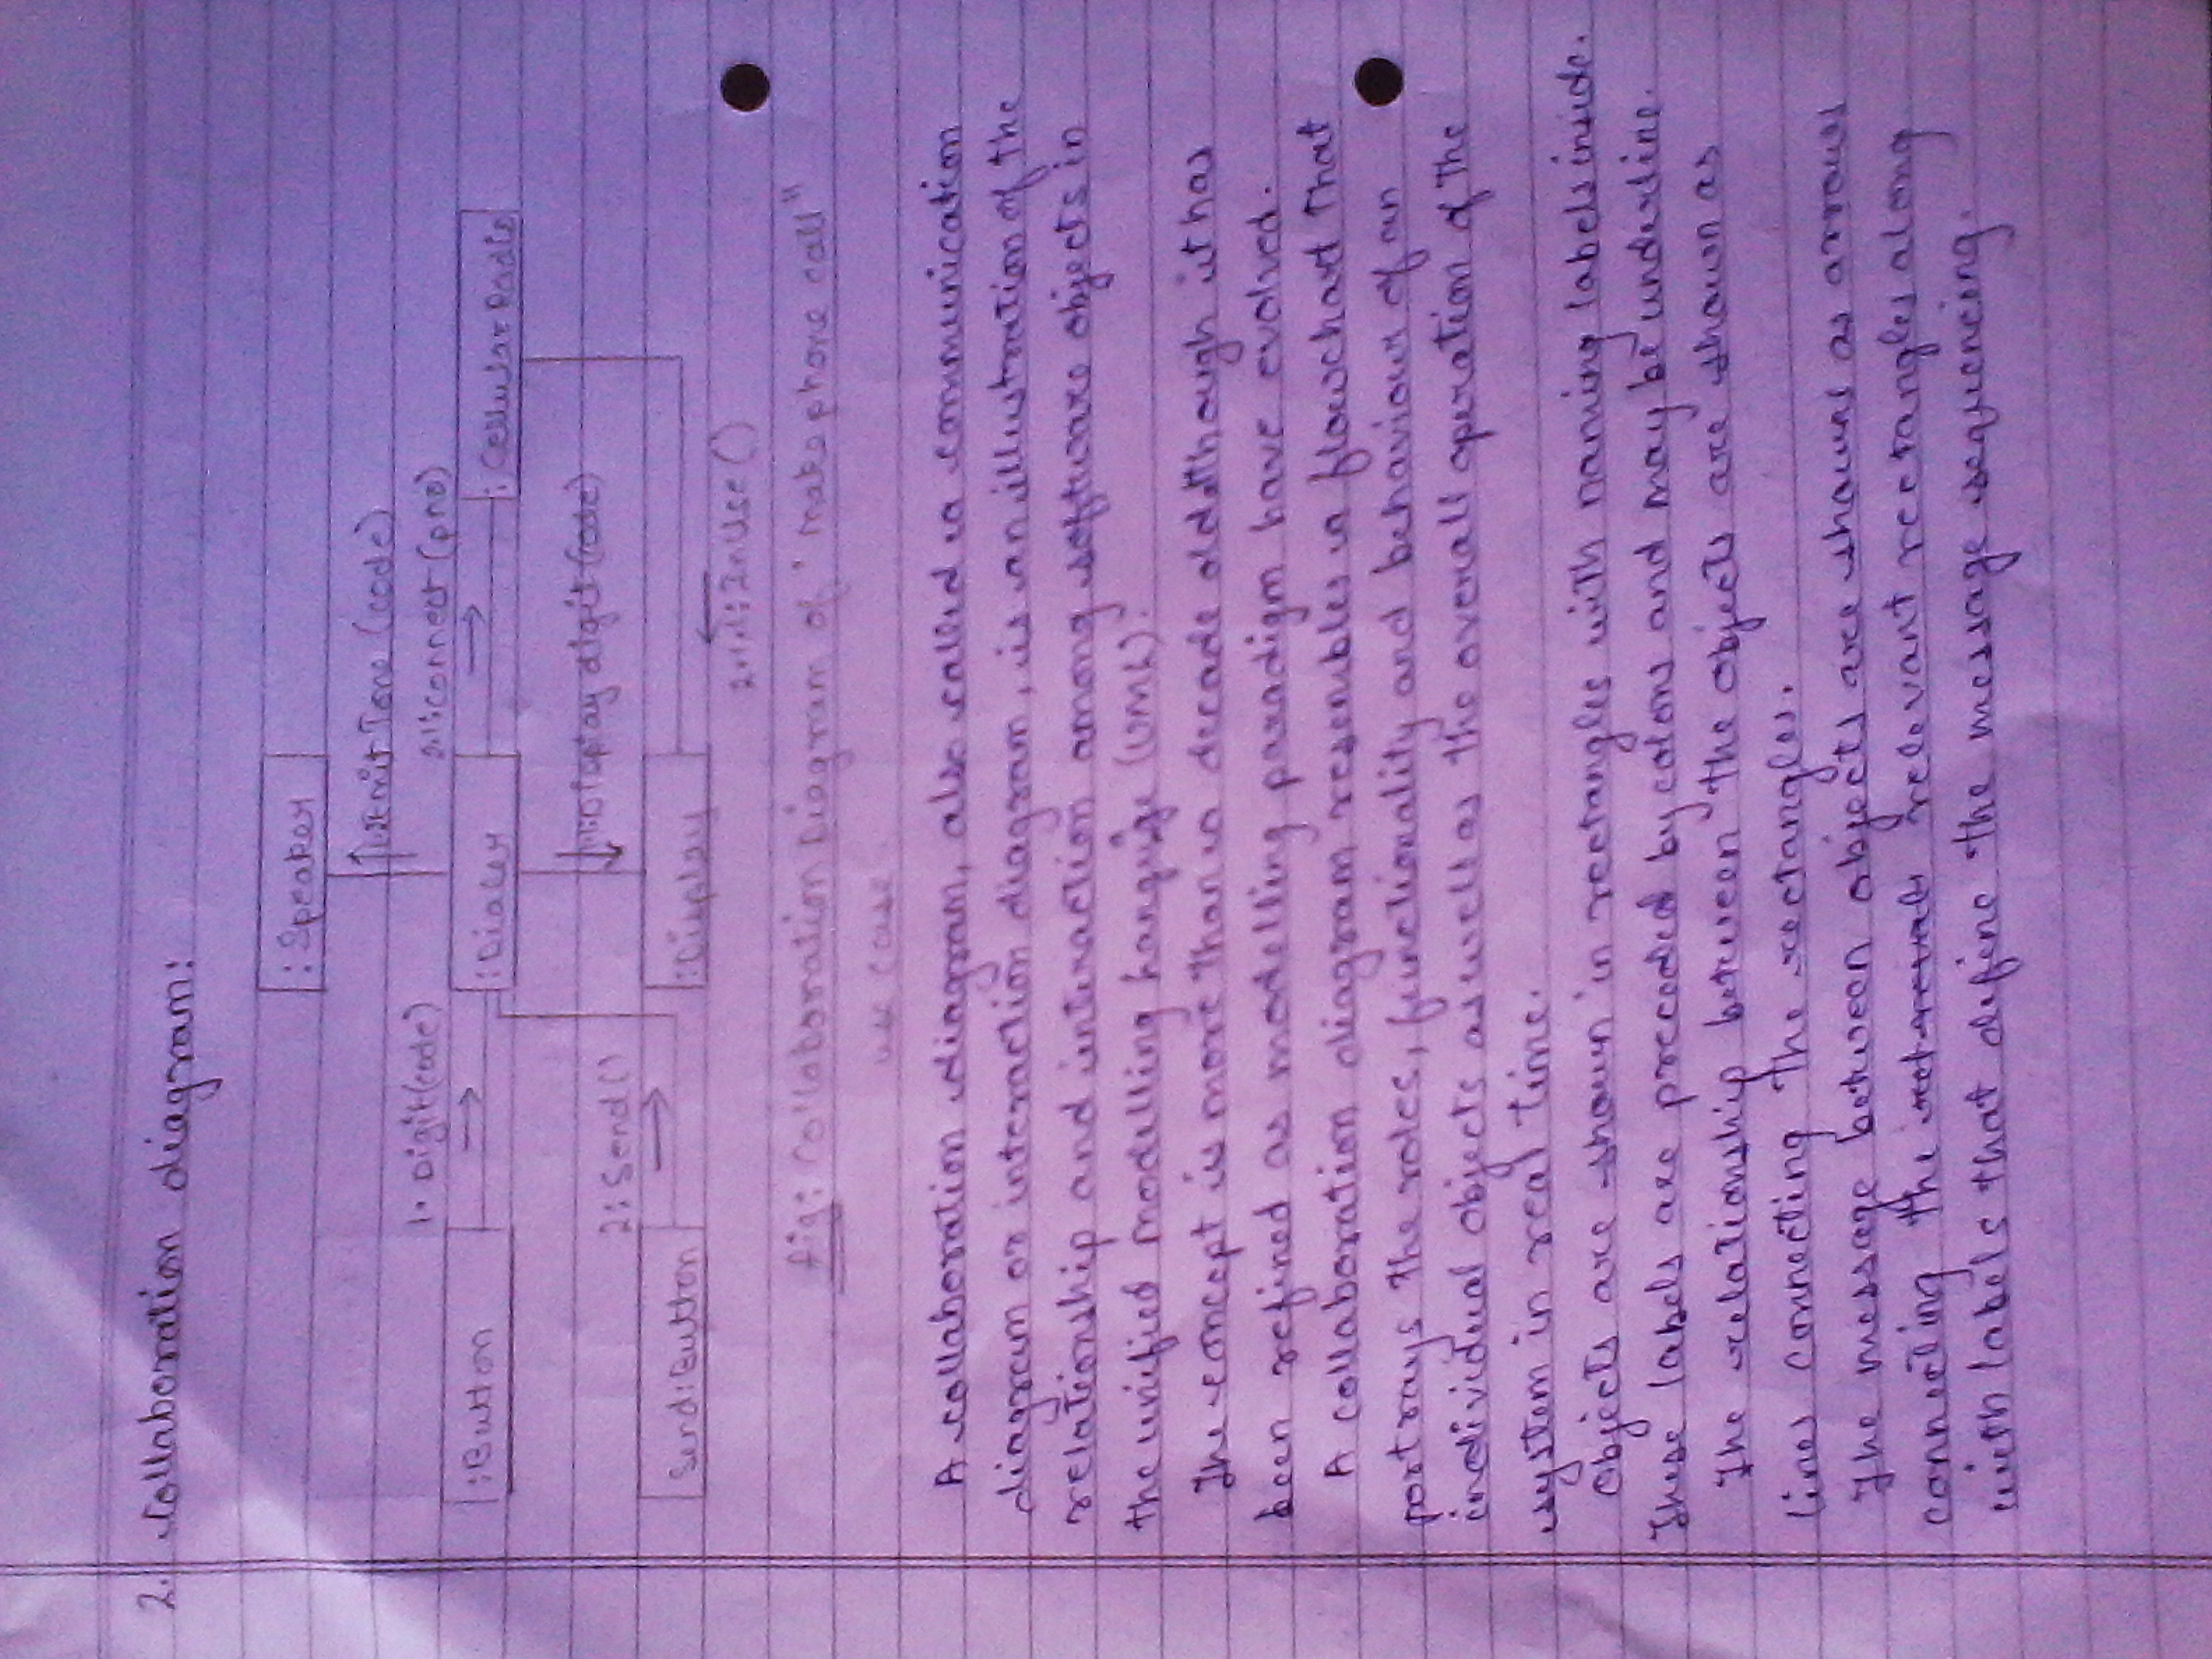 2. Collaboration diagram:
:Speaker
1.2:Emit Tone (code)
1. Digit(code)
2.1:connect (pno)
:Button
:Dialer
:Cellular Radio
1.1:Display digit(code)
2: Send()
Send:Button
:Display
2.1.1:InUse()
fig: Collaboration Diagram of "make phone call"
use case
A collaboration diagram, also called a communication
diagram or interaction diagram, is an illustration of the
relationship and interaction among software objects in
the unified modelling language (UML).
The concept is more than a decade old although it has
been refined as modelling paradigm have evolved.
A collaboration diagram resembles a flowchart that
portrays the roles, functionality and behaviour of an
individual objects as well as the overall operation of the
system in real time.
Objects are shown in rectangles with naming labels inside.
These labels are preceded by colons and may be underline.
The relationship between the objects are shown as
lines connecting the rectangles.
The message between objects are shown as arrows
connecting the relevant rectangles along
with labels that define the message sequencing.